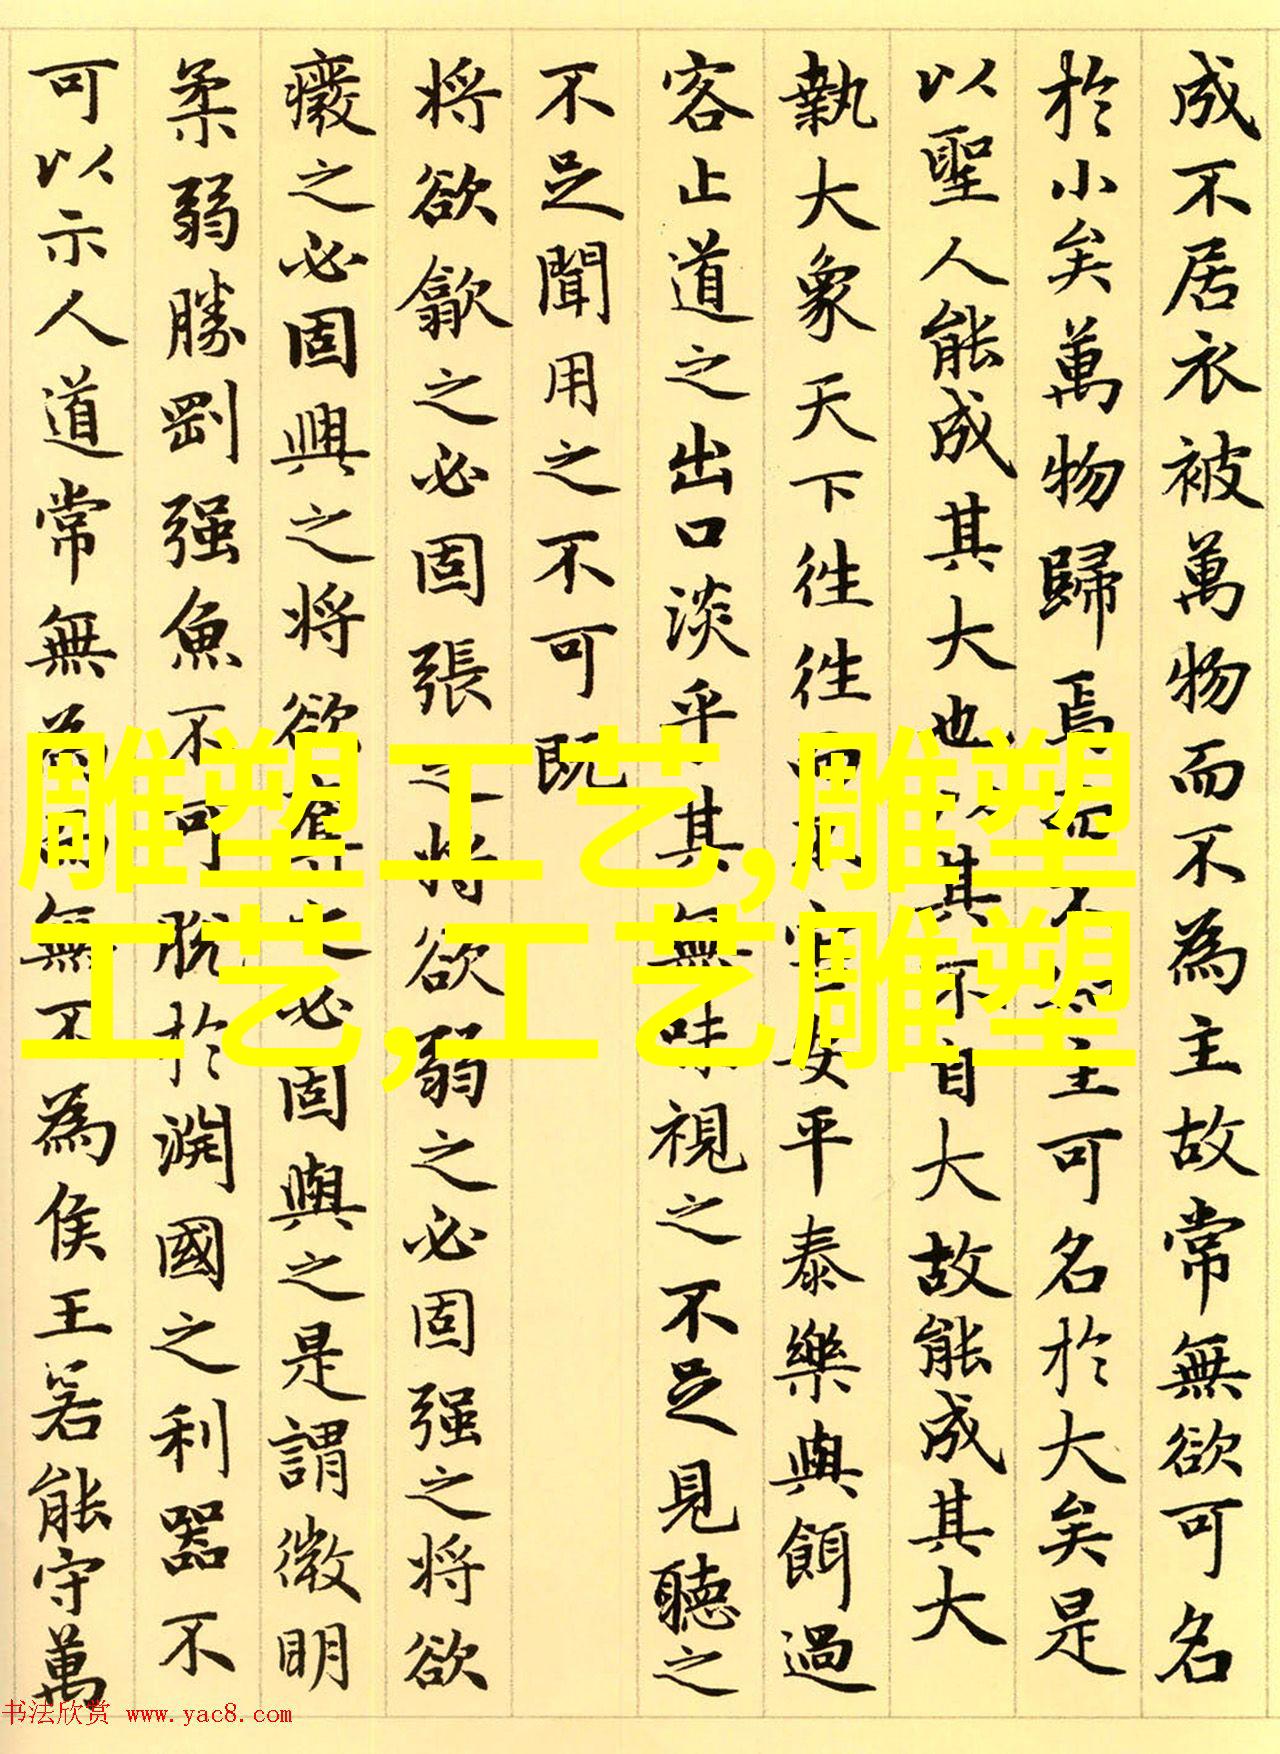 成不居衣被萬物而不為主故常無欲可名
於小矣萬物歸焉而不知主可名於大矣是
以聖人能成其大也以其不自大故能成其大
執大象天下往往而不害安平泰樂與餌過
客止道之出口淡乎其無味視之不足見聽之
不足聞用之不可既
将欲歙之必固張之将欲弱之必固强之将欲
癈之必固興之将欲奪之必固與之是謂微明
柔弱勝剛强魚不可脫於淵國之利器不
可以示人道常無為而無不為侯王若能守萬
雕塑工艺,雕塑
工艺,工艺雕塑
书法欣赏 www.yac8.com